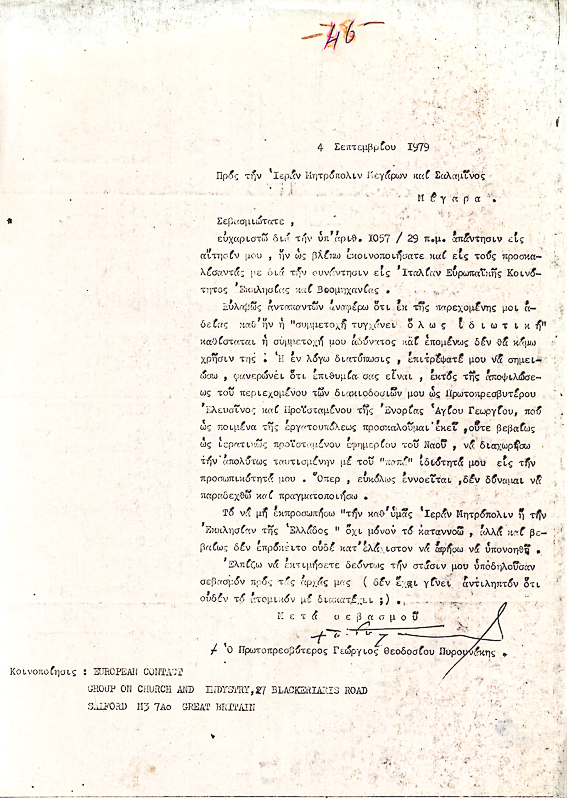 46
4 Σεπτεμβρίου 1979
Πρός τήν Ἱεράν Μητρόπολιν Μεγάρων καί Σαλαμῖνος
Μ έ γ α ρ α .
Σεβασμιώτατε ,
εὐχαριστῶ διά τήν ὑπ'ἀριθ. 1057 / 29 π.μ. ἀπάντησιν εἰς
αἴτησίν μου , ἥν ὡς βλέπω ἐκοινοποιήσατε καί εἰς τούς προσκα-
λέσαντάς με διά τήν συνάντησιν εἰς Ἰταλίαν Εὐρωπαϊκῆς Κοινό-
τητος Ἐκκλησίας καί Βιομηχανίας .
Εὐλαβῶς ἀνταπαντῶν ἀναφέρω ὅτι ἐκ τῆς παρεχομένης μοι ἀ-
δείας καθ'ἥν ἡ "συμμετοχή τυγχάνει ὅ λ ω ς ἰ δ ι ω τ ι κ ή"
καθίσταται ἡ συμμετοχή μου ἀδύνατος καί ἑπομένως δέν θά κάμω
χρῆσιν της . Ἡ ἐν λόγω διατύπωσις , ἐπιτρέψατέ μου νά σημει-
ώσω , φανερώνει ὅτι ἐπιθυμία σας εἶναι , ἐκτός τῆς ἀποψιλώσε-
ως τοῦ περιεχομένου τῶν διακιοδοσιῶν μου ὡς Πρωτοπρεσβυτέρου
Ἐλευσῖνος καί Προϊσταμένου τῆς Ἐνορίας Ἁγίου Γεωργίου, πού
ὡς ποιμένα τῆς ἐργατουπόλεως προσκαλοῦμαι ἐκεῖ ,οὔτε βεβαίως
ὡς ἱερατικῶς προϊσταμένου ἐφημερίου τοῦ Ναοῦ , νά διαχωρίσω
τήν ἀπολύτως ταυτισμένην μέ τοῦ "παπᾶ" ἰδιότητά μου εἰς τήν
προσωπικότητά μου . Ὅπερ , εὐκόλως ἐννοεῖται ,δέν δύναμαι νά
παραδεχθῶ καί πραγματοποιήσω .
Τό νά μή ἐκπροσωπήσω "τήν καθ'ὑμᾶς Ἱεράν Μητρόπολιν ἤ τήν
Ἐκκλησίαν τῆς Ἑλλάδος " ὄχι μόνον τό κατανοῶ , ἀλλά καί βε-
βαίως δέν ἐπρόκειτο οὐδέ κατ'ἐλάχιστον νά ἀφήσω νά ὑπονοηθῆ .
Ἐλπίζω νά ἐκτιμήσετε δεόντως τήν στάσιν μου ὑποδηλοῦσαν
σεβασμόν πρός τάς ἀρχάς μας ( δέν ἔχει γίνει ἀντιληπτόν ὅτι
οὐδέν τό ἀτομικόν μέ διακατέχει ;) .
Μ ε τ ά σ ε β α σ μ ο ῦ
+ Ὁ Πρωτοπρεσβύτερος Γεώργιος Θεοδοσίου Πυρουνάκης .
Κοινοποίησις : EUROPEAN CONTACT
GROUP ON CHURCH AND INDYSTRY,27 BLACKERIARIS ROAD
SALFORD M3 7A0 GREAT BRITAIN